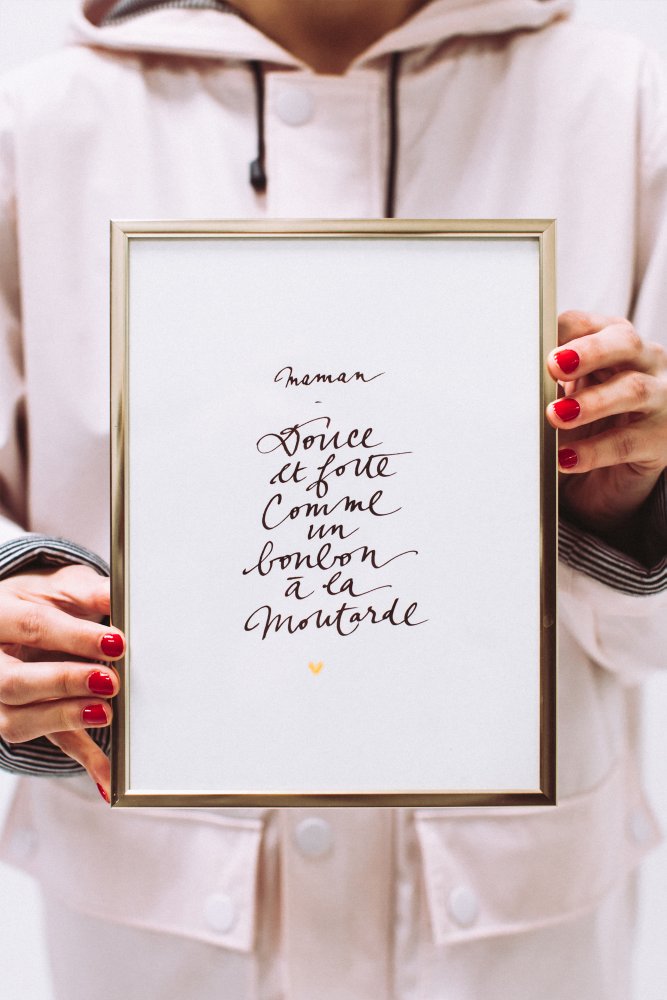 maman
-
Douce
et forte
Comme
un
bonbon
à la
Moutarde